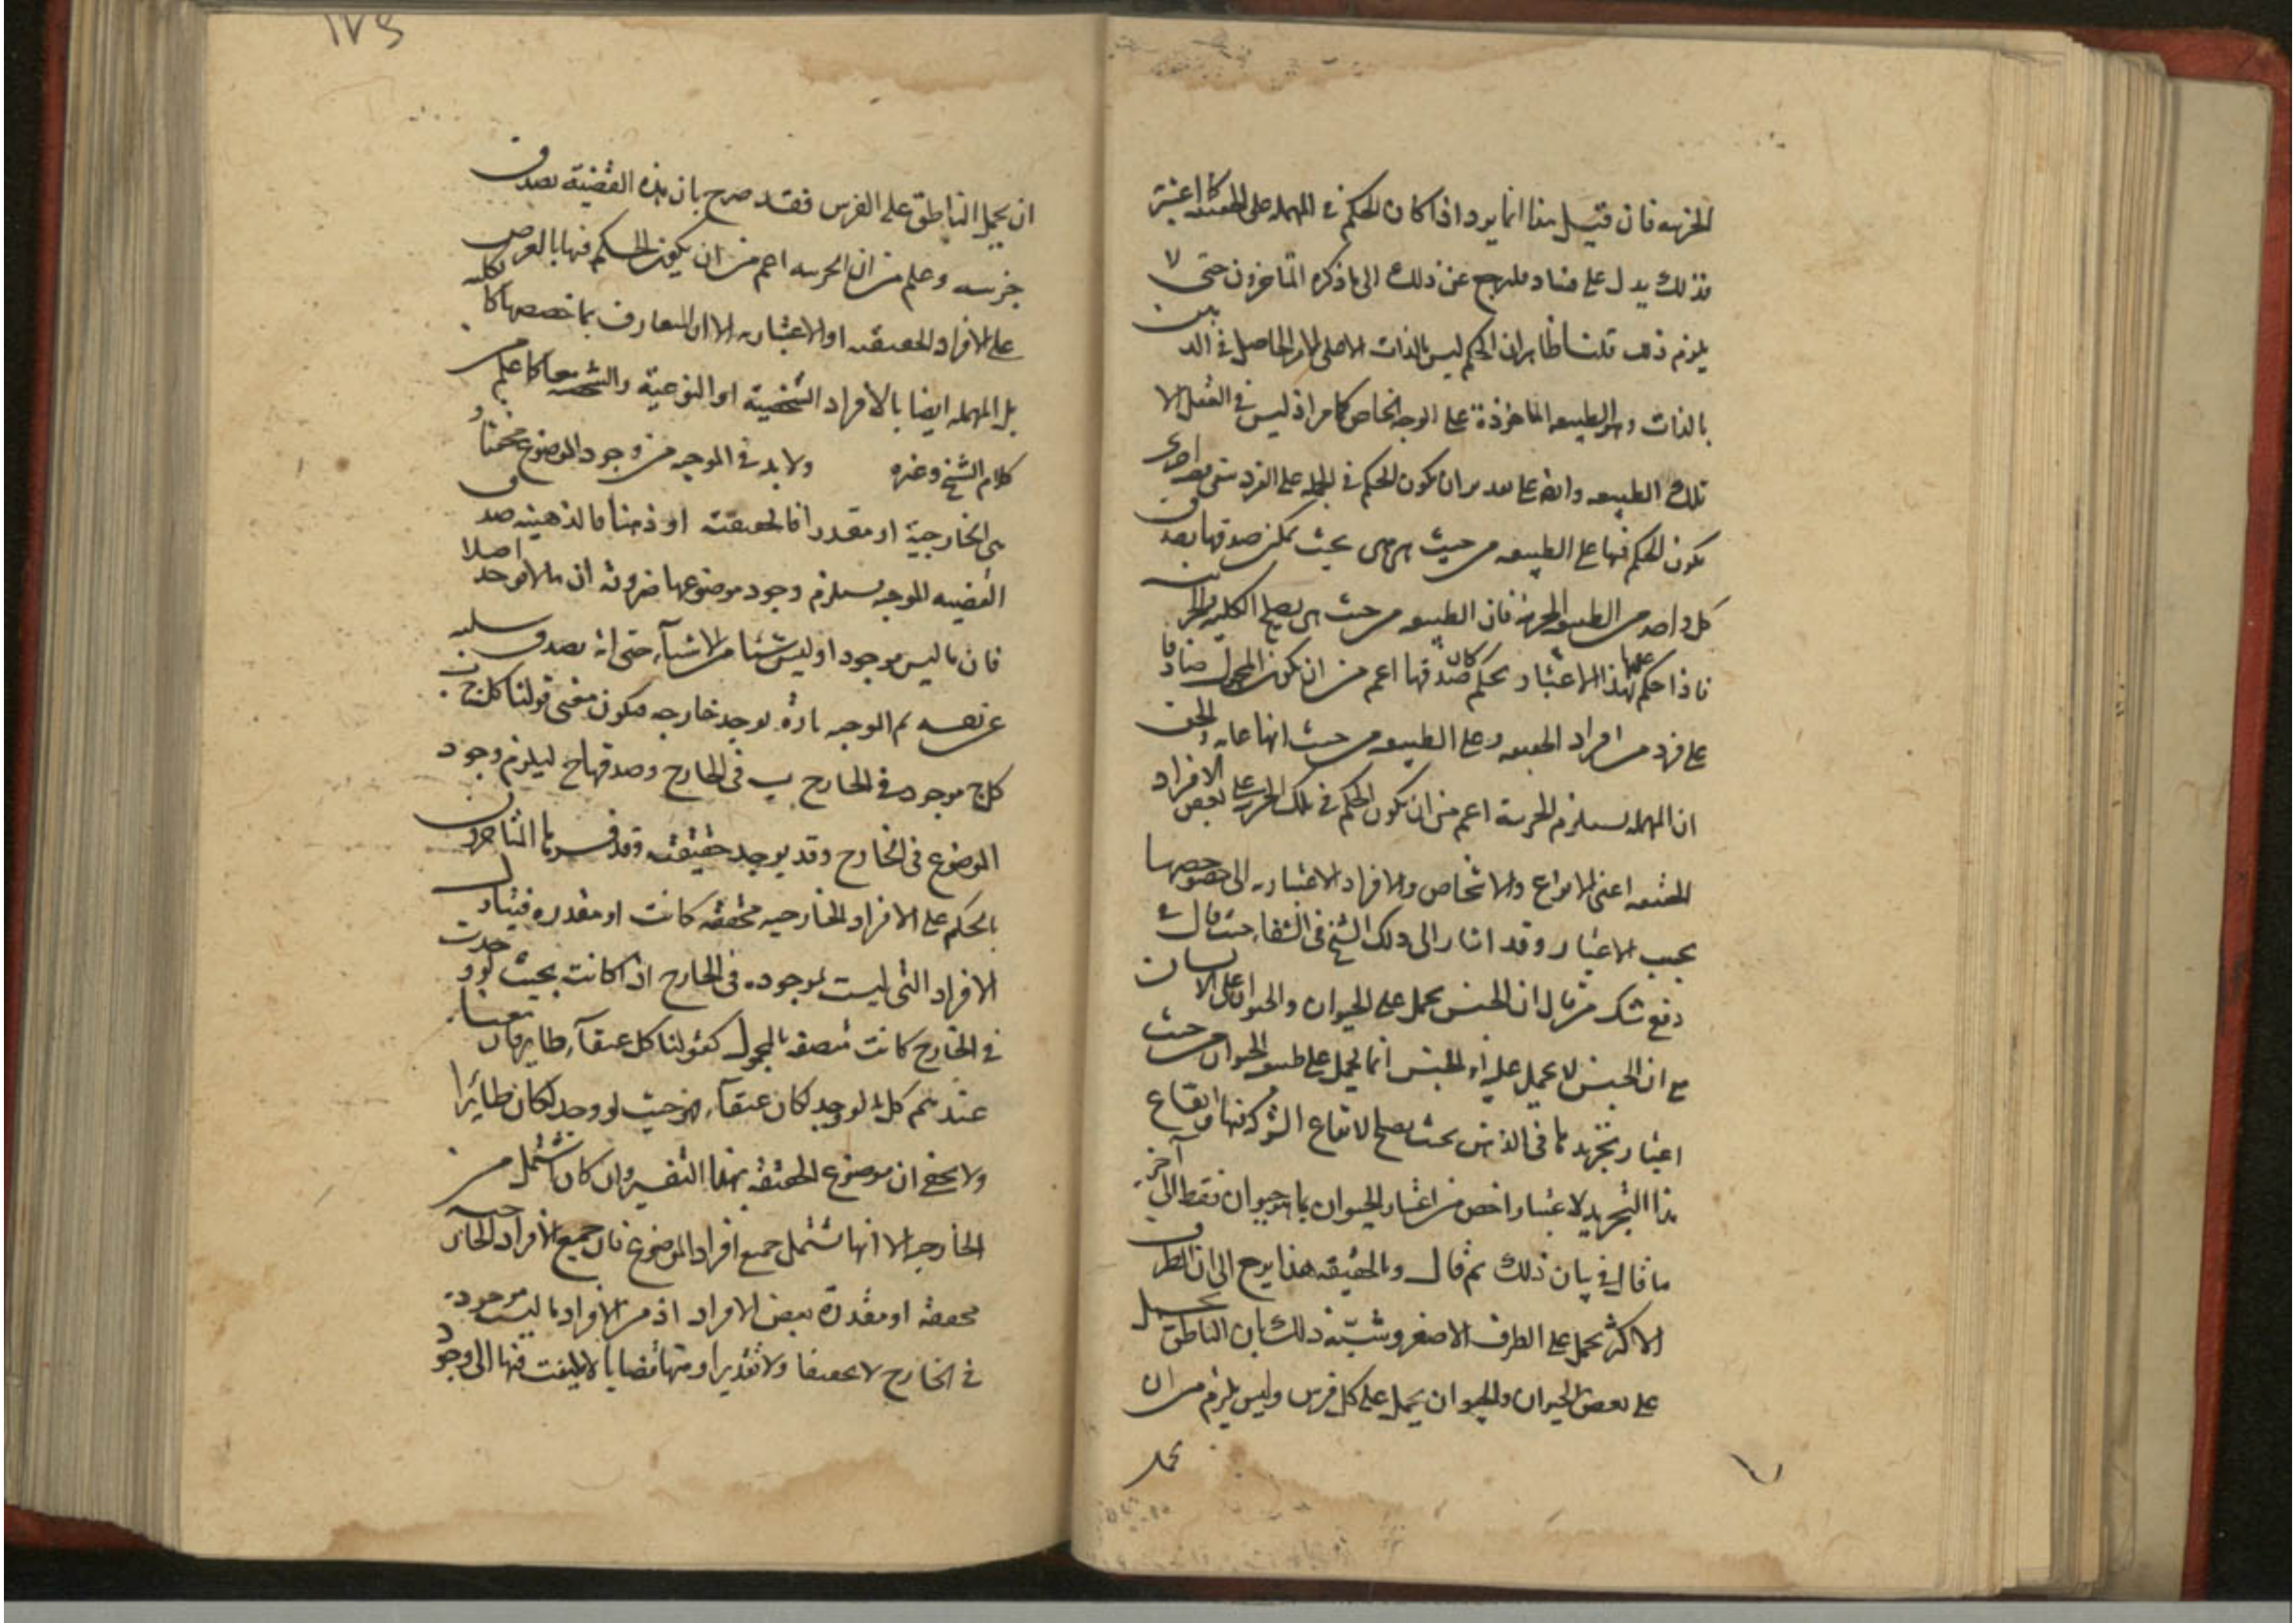 الجزئية فان قيل هذا انما يرد اذا كان الحكم في المهملة على الطبيعة كما اعترف
فذلك يدل على فساد فليرجع عن ذلك الى ما ذكره المتاخرون حتى لا
يلزم ذلك قلنا ظاهر ان الحكم ليس بالذات الا على الامر الحاصل في الذهن
بالذات وهو الطبيعه الماخوذة على الوجه الخاص كما مر اذ ليس في العقل الا
تلك الطبيعه وايضا على تقدير ان يكون الحكم في الجمله على الفرد متى
يكون الحكم فيها على الطبيعه من حيث هي هي بحيث يمكن صدقها بصدق
كل واحد من الطبيعية والجزئية فان الطبيعه من حيث هي يصلح الكليه والجزئيه
فاذا حكم عليها بهذا الاعتبار بحكم كان صدقها اعم من ان يكون المحمول صادقا
على فرد من افراد الطبيعه وعلى الطبيعه من حيث انها عامه والحق
ان المهمله يستلزم الجزئية اعم من ان يكون الحكم في تلك الجزئيه على بعض الافراد
الحقيقه اعنى الانواع والاشخاص والافراد الاعتباريه الى خصوصها
بحسب الاعتبار وقد اشار الى ذلك الشيخ في الشفاء حيث قال في
دفع شك من قال ان الجنس يحمل على الحيوان والحيوان على الانسان
مع ان الجنس لا يحمل عليه ان الجنس انما يحمل على طبيعه الحيوان من حيث
اعتبار تجريدها في الذهن بحيث يصلح لايقاع الشركه فيها وايقاع
هذا التجريد لا عتبار اخص من اعتبار الحيوان بما هو حيوان فقط الى آخر
ما قال في بيان ذلك ثم قال وبالحقيقه هذا يرجع الى ان الطرف
الاكثر يحمل على الطرف الاصغر وشبّه ذلك بان الناطق يحمل
على بعض الحيوان والحيوان يحمل على كل فرس وليس يلزم من ان
يحمل
١٧٤
ان يحمل الناطق على الفرس فقد صرح بان هذه القضية تصدق
جزئيه وعلم من ان الجزئيه اعم من ان يكون الحكم فيها بالعرض
على الافراد الحقيقيه او الاعتباريه الا ان المتعارف بما خصصها كالكليه
بل المهمله ايضا بالافراد الشخصية او النوعية والشخصية كما علم من
كلام الشيخ وغيره ولا بد في الموجبه من وجود الموضوع محققا و
هي الخارجية او مقدرا فالحقيقيه او ذهنا فالذهنيه صدق
القضيه الموجبه يستلزم وجود موضوعها ضرورة ان ما لا يوجد اصلا
فان ما ليس موجود او ليس شيئا من الاشياء حتى انه يصدق سلبه
عن نفسه ثم الموجبه تارة يوجد خارجيه فيكون معنى قولنا كل ج ب
كل ج موجود في الخارج ب في الخارج وصدقها ح ليلزم وجود
الموضوع في الخارج وقد يوجد حقيقيه وقد فسرها المتاخرون
بالحكم على الافراد الخارجيه محققه كانت او مقدره فيتناول
الافراد التي ليست بموجوده في الخارج اذا كانت بحيث لو وجدت
في الخارج كانت متصفه بالمحمول كقولنا كل عنقآء طاير فان معناه
عندهم كل ما لو وجد كان عنقآء فهو بحيث لو وجد لكان طايرا
ولا يخفى ان موضوع الحقيقه بهذا التفسير وان كان اشمل من
الخارجيه الا انها لا تشتمل جميع افراد الموضوع فان جميع الافراد الخارجيه
محققه او مقدرة بعض الافراد اذ من الافراد ما ليست موجوده
في الخارج لا تحقيقا ولا تقديرا ومنها قضايا لا يلتفت فيها الى وجود